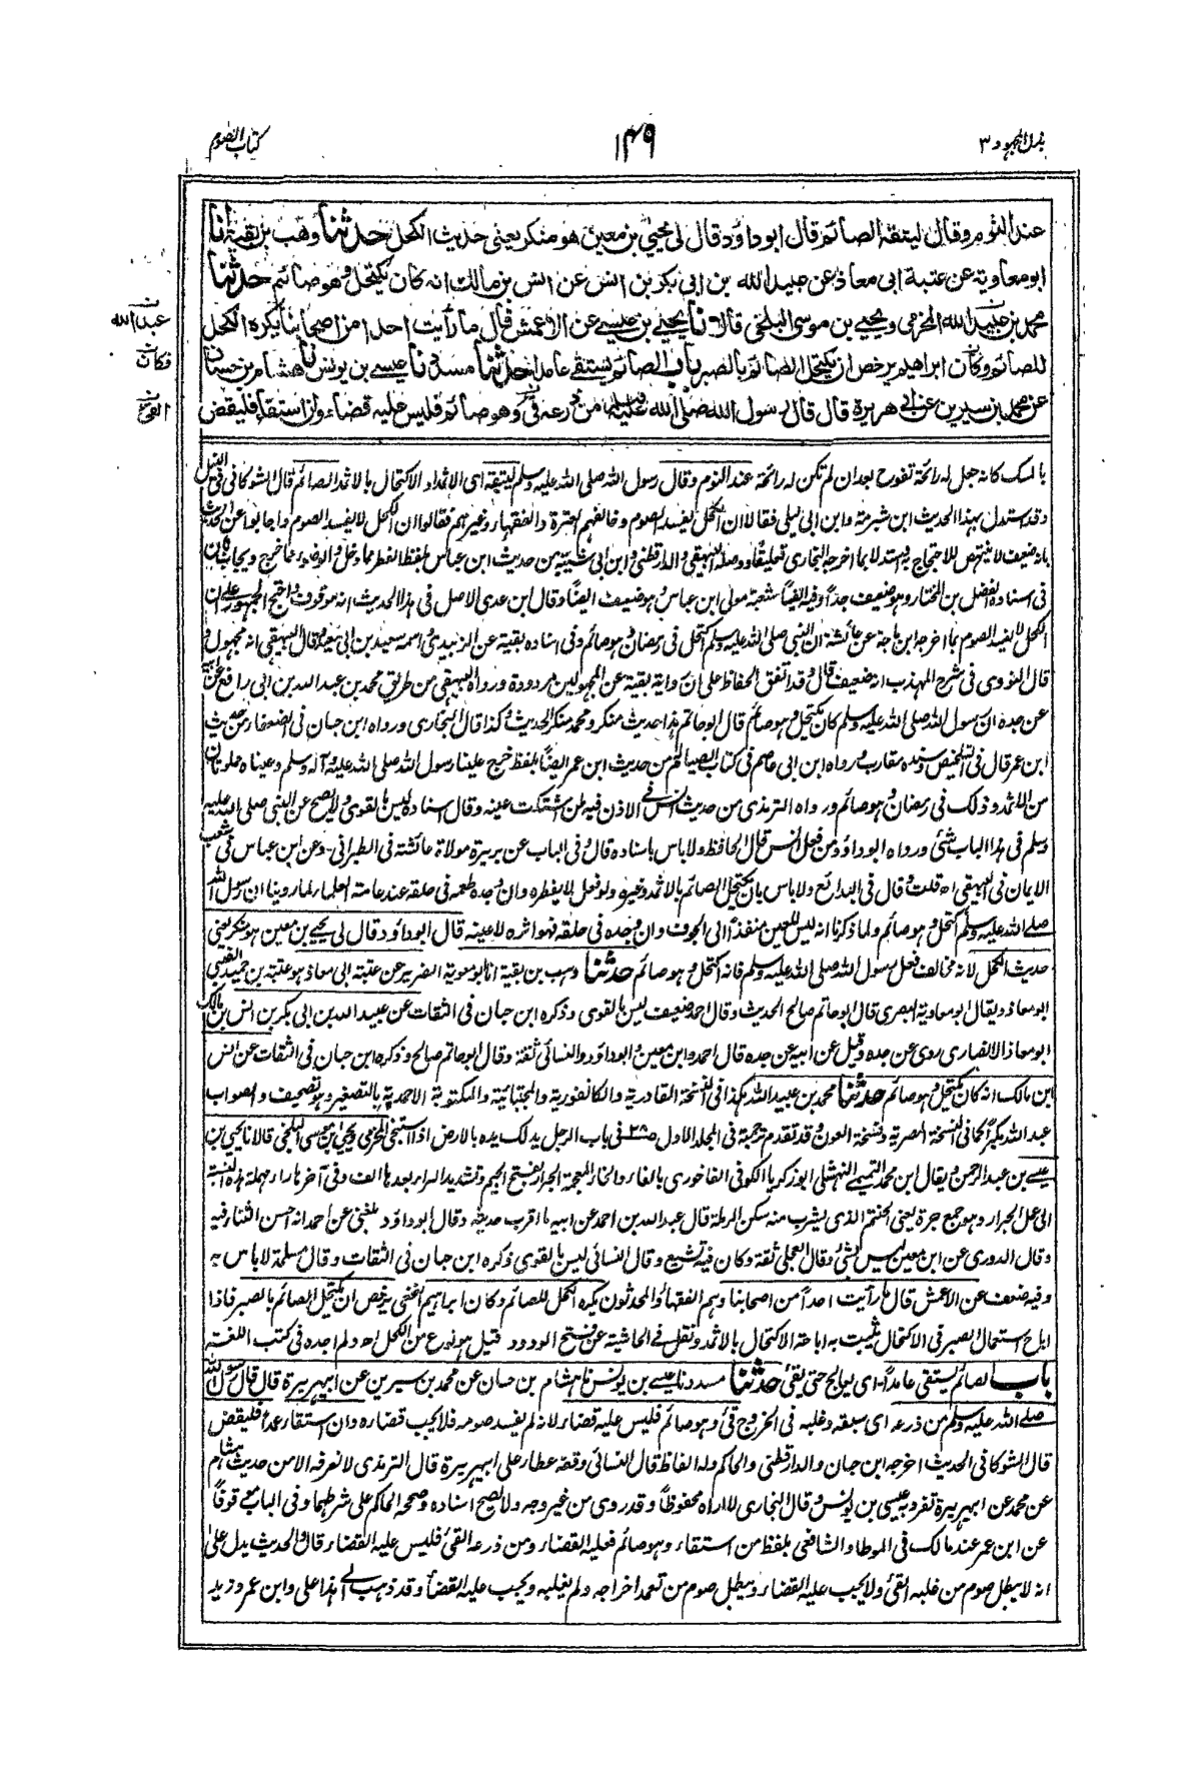 بذل المجهود ٣
١٤٩
كتاب الصوم
عند النوم وقال ليتقه الصائم قال ابو داؤد قال لي يحيى بن معين هو منكر يعني حديث الكحل حدثنا وهب بن بقية انا
ابو معاوية عن عتبة ابي معاذ عن عبيد الله بن ابي بكر بن انس عن انس بن مالك انه كان يكتحل وهو صائم حدثنا
محمد بن عبيد الله المخرمي ويحيى بن موسى البلخي قالا نا يحيى بن عيسى عن الاعمش قال ما رأيت احدا من اصحابنا يكره الكحل
للصائم وكان ابراهيم يرخص ان يكتحل الصائم بالصبر باب الصائم يستقئ عامدا حدثنا مسدد نا عيسى بن يونس نا هشام بن حسان
عن محمد بن سيرين عن ابي هريرة قال قال رسول الله صلى الله عليه وسلم من ذرعه قئ وهو صائم فليس عليه قضاء وان استقاء فليقض
عبد الله
فكان
القئ
بالمسك كانه جعل له رائحة تفوح بعد ان لم تكن له رائحة عند النوم وقال رسول الله صلى الله عليه وسلم ليتقه اى الاثمد او الاكتحال بالاثمد الصائم قال الشوكاني في النيل
وقد استدل بهذا الحديث ابن شبرمة وابن ابي ليلى فقالا ان الكحل يفسد الصوم وخالفهم العترة والفقهاء وغيرهم فقالوا ان الكحل لا يفسد الصوم واجابوا عن الحديث
بانه ضعيف لا ينتهض للاحتجاج به واستدلا بما اخرجه البخاري تعليقا ووصله البيهقي والدارقطني وابن ابي شيبة من حديث ابن عباس بلفظ الفطر مما دخل والوضوء مما خرج ويجاب بان
في اسناده الفضل بن المختار وهو ضعيف جداً وفيه ايضاً شعبة مولى ابن عباس وهو ضعيف ايضاً وقال ابن عدي الاصل في هذا الحديث انه موقوف واحتج الجمهور على ان
الكحل لا يفسد الصوم بما اخرجه ابن ماجة عن عائشة ان النبي صلى الله عليه وسلم اكتحل في رمضان وهو صائم وفي اسناده بقية عن الزبيدي واسمه سعيد بن ابي سعيد قال البيهقي انه مجهول و
قال النووي في شرح المهذب انه ضعيف قال وقد اتفق الحفاظ على ان رواية بقية عن المجهولين مردودة ورواه البيهقي من طريق محمد بن عبد الله بن ابي رافع عن ابيه
عن جده ان رسول الله صلى الله عليه وسلم كان يكتحل وهو صائم قال ابو حاتم هذا حديث منكر ومحمد منكر الحديث وكذا قال البخاري ورواه ابن حبان في الضعفاء من حديث
ابن عمر قال في التلخيص وسنده مقارب ورواه ابن ابي عاصم في كتاب الصيام له من حديث ابن عمر ايضاً بلفظ خرج علينا رسول الله صلى الله عليه وآله وسلم وعيناه مملوءتان
من الاثمد وذلك في رمضان وهو صائم ورواه الترمذي من حديث انس في الاذن فيه لمن اشتكت عينه وقال اسناده ليس بالقوى ولا يصح عن النبي صلى الله عليه
وسلم في هذا الباب شئ ورواه ابو داؤد من فعل انس قال الحافظ ولا باس باسناده قال وفي الباب عن بريرة مولاة عائشة في الطبراني وعن ابن عباس في شعب
الايمان في البيهقي اه قلت وقال في البدائع ولا باس بان يكتحل الصائم بالاثمد وغيره ولو فعل لا يفطره وان وجد طعمه في حلقه عند عامة العلماء لما روينا ان رسول الله
صلى الله عليه وسلم اكتحل وهو صائم ولما ذكرنا انه ليس للعين منفذاً الى الجوف وان وجده في حلقه فهو اثره لا عينه قال ابو داؤد قال لي يحيى بن معين هو منكر يعني
حديث الكحل لانه مخالف فعل رسول الله صلى الله عليه وسلم فانه اكتحل وهو صائم حدثنا وهب بن بقية انا ابو معوية الضرير عن عتبة ابي معاذ هو عتبة بن حميد الضبي
ابو معاذ ويقال ابو معاوية البصري قال ابو حاتم صالح الحديث وقال احمد ضعيف ليس بالقوى وذكره ابن حبان في الثقات عن عبيد الله بن ابي بكر بن انس بن مالك
ابو معاذ الانصاري روى عن جده وقيل عن ابيه عن جده قال احمد وابن معين وابو داؤد والنسائي ثقة وقال ابو حاتم صالح وذكره ابن حبان في الثقات عن انس
ابن مالك انه كان يكتحل وهو صائم حدثنا محمد بن عبيد الله هكذا في النسخة القادرية والكانفورية والمجتبائية والمكتوبة الاحمدية بالتصغير وهو تصحيف والصواب
عبد الله مكبراً كما في النسخة المصرية ونسخة العون وقد تقدم ترجمة في المجلد الاول ص٢٨ في باب الرجل يدلك يده بالارض اذا استنجى المخرمي ويحيى بن موسى البلخي قالا نا يحيى بن
عيسى بن عبد الرحمن ويقال ابن محمد التميمي النهشلي ابو زكريا الكوفي الفاخوري بالفاء والخاء المعجمة الجرار بفتح الجيم وتشديد الراء بعدها الف وفي آخرها راء مهملة هذه النسبة
الى عمل الجرار وهو جمع جرة يعني الحنتم الذي يشرب منه سكن الرملة قال عبد الله بن احمد عن ابيه ما اقرب حديثه وقال ابو داؤد بلغني عن احمد انه احسن الثناء فيه
وقال الدوري عن ابن معين ليس بشئ وقال العجلي ثقة وكان فيه تشيع وقال النسائي ليس بالقوى ذكره ابن حبان في الثقات وقال مسلمة لا باس به
وفيه ضعف عن الاعمش قال ما رأيت احداً من اصحابنا وهم الفقهاء والمحدثون يكره الكحل للصائم وكان ابراهيم النخعي يرخص ان يكتحل الصائم بالصبر فاذا
اباح استعمال الصبر في الاكتحال يثبت به اباحة الاكتحال بالاثمد ونقل في الحاشية عن فتح الودود قيل هو نوع من الكحل اه ولم اجده في كتب اللغة
باب الصائم يستقئ عامداً اى يعالج حتى يقئ حدثنا مسدد نا عيسى بن يونس نا هشام بن حسان عن محمد بن سيرين عن ابيهريرة قال قال رسول الله
صلى الله عليه وسلم من ذرعه اى سبقه وغلبه في الخروج قئ وهو صائم فليس عليه قضاء لانه لم يفسد صومه فلا يجب قضاءه وان استقاء عمداً فليقض
قال الشوكاني الحديث اخرجه ابن حبان والدارقطني والحاكم وله الفاظ قال النسائي وقفه عطاء على ابيهريرة قال الترمذي لا نعرفه الا من حديث هشام
عن محمد عن ابيهريرة تفرد به عيسى بن يونس وقال البخاري لا اراه محفوظاً وقد روى من غير وجه ولا يصح اسناده وصححه الحاكم على شرطهما وفي الباب موقوفاً
عن ابن عمر عند مالك في الموطا والشافعي بلفظ من استقاء وهو صائم فعليه القضاء ومن ذرعه القئ فليس عليه القضاء قال والحديث يدل على
انه لا يبطل صوم من غلبه القئ ولا يجب عليه القضاء ويبطل صوم من تعمد اخراجه ولم يغلبه ويجب عليه القضاء وقد ذهب الى هذا علي وابن عمر وزيد